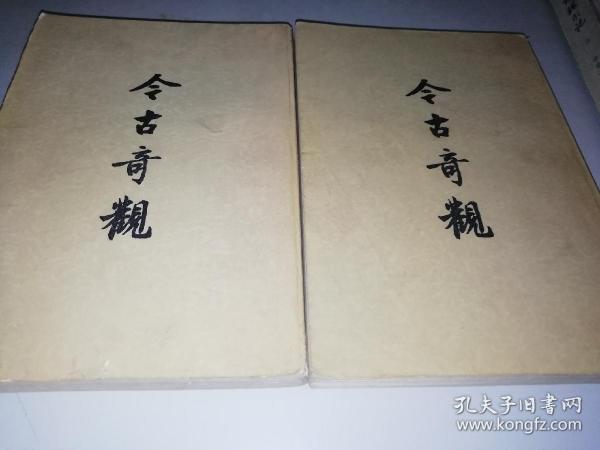 今古奇觀
今古奇觀
孔夫子旧書网
www.kongfz.com